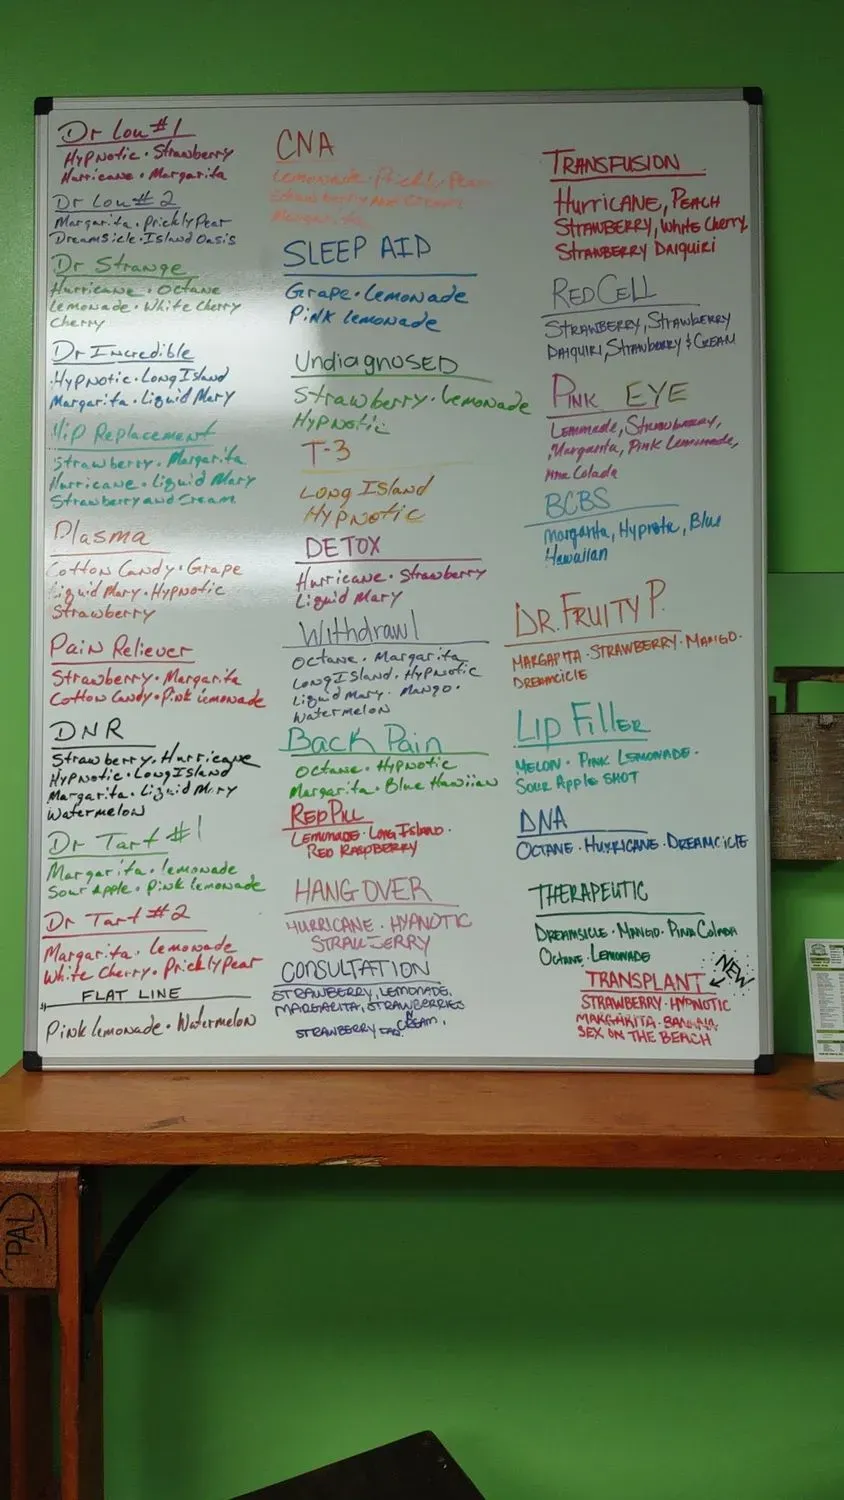 Dr Lou #1
Hypnotic · Strawberry
Hurricane · Margarita
Dr Lou #2
Margarita · Prickly Pear
Dreamsicle · Island Oasis
Dr Strange
Hurricane · Octane
Lemonade · White Cherry
Cherry
Dr Incredible
Hypnotic · Long Island
Margarita · Liquid Mary
Hip Replacement
Strawberry · Margarita
Hurricane · Liquid Mary
Strawberry and Cream
Plasma
Cotton Candy · Grape
Liquid Mary · Hypnotic
Strawberry
Pain Reliever
Strawberry · Margarita
Cotton Candy · Pink Lemonade
DNR
Strawberry · Hurricane
Hypnotic · Long Island
Margarita · Liquid Mary
Watermelon
Dr Tart #1
Margarita · lemonade
Sour Apple · Pink lemonade
Dr Tart #2
Margarita · Lemonade
White Cherry · Prickly Pear
FLAT LINE
Pink lemonade · Watermelon
CNA
Lemonade · Prickly Pear
Strawberry and Cream
Margarita
SLEEP AID
Grape · Lemonade
Pink lemonade
Undiagnosed
Strawberry · Lemonade
Hypnotic
T-3
Long Island
Hypnotic
DETOX
Hurricane · Strawberry
Liquid Mary
Withdrawl
Octane · Margarita
Long Island · Hypnotic
Liquid Mary · Mango ·
Watermelon
Back Pain
Octane · Hypnotic
Margarita · Blue Hawaiian
RED PILL
LEMONADE · LONG ISLAND ·
RED RASPBERRY
HANGOVER
HURRICANE · HYPNOTIC
STRAWBERRY
CONSULTATION
STRAWBERRY, LEMONADE,
MARGARITA, STRAWBERRIES
N CREAM,
STRAWBERRY DAQ.
TRANSFUSION
HURRICANE, PEACH
STRAWBERRY, White Cherry,
STRAWBERRY DAIQUIRI
RED CELL
STRAWBERRY, STRAWBERRY
DAIQUIRI, Strawberry & CREAM
PINK EYE
Lemonade, Strawberry,
Margarita, Pink Lemonade,
Pina Colada
BCBS
Margarita, Hypnotic, Blue
Hawaiian
DR. FRUITY P.
MARGARITA · STRAWBERRY · MANGO ·
DREAMCICLE
LIP FILLER
MELON · PINK LEMONADE ·
SOUR Apple SHOT
DNA
OCTANE · HURRICANE · DREAMCICLE
THERAPEUTIC
DREAMSICLE · MANGO · PINA COLADA
OCTANE · LEMONADE
NEW
TRANSPLANT
STRAWBERRY · HYPNOTIC
MARGARITA · BANANA
SEX ON THE BEACH
PAL